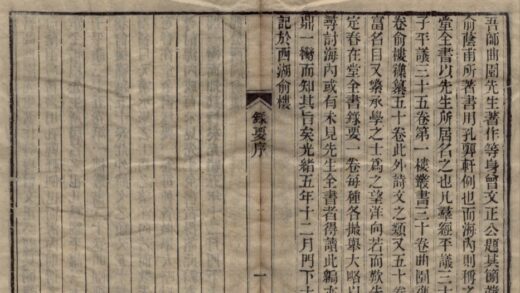 吾師曲園先生著作等身曾文正公題其簡
俞蔭甫所著書用孔巽軒例也而海內則稱之
堂全書以先生所居名之也凡羣經平議三十
子平議三十五卷第一樓叢書三十卷曲園
卷俞樓襍纂五十卷此外詩文之類又五十
富名目又緐承學之士爲之望洋向若而歎
定春在堂全書錄要一卷每種各撮舉大略以
尋討海內或有未見先生全書者得讀此編
鼎一臠而知其旨矣光緒五年十二月門下
記於西湖俞樓
錄要序
一